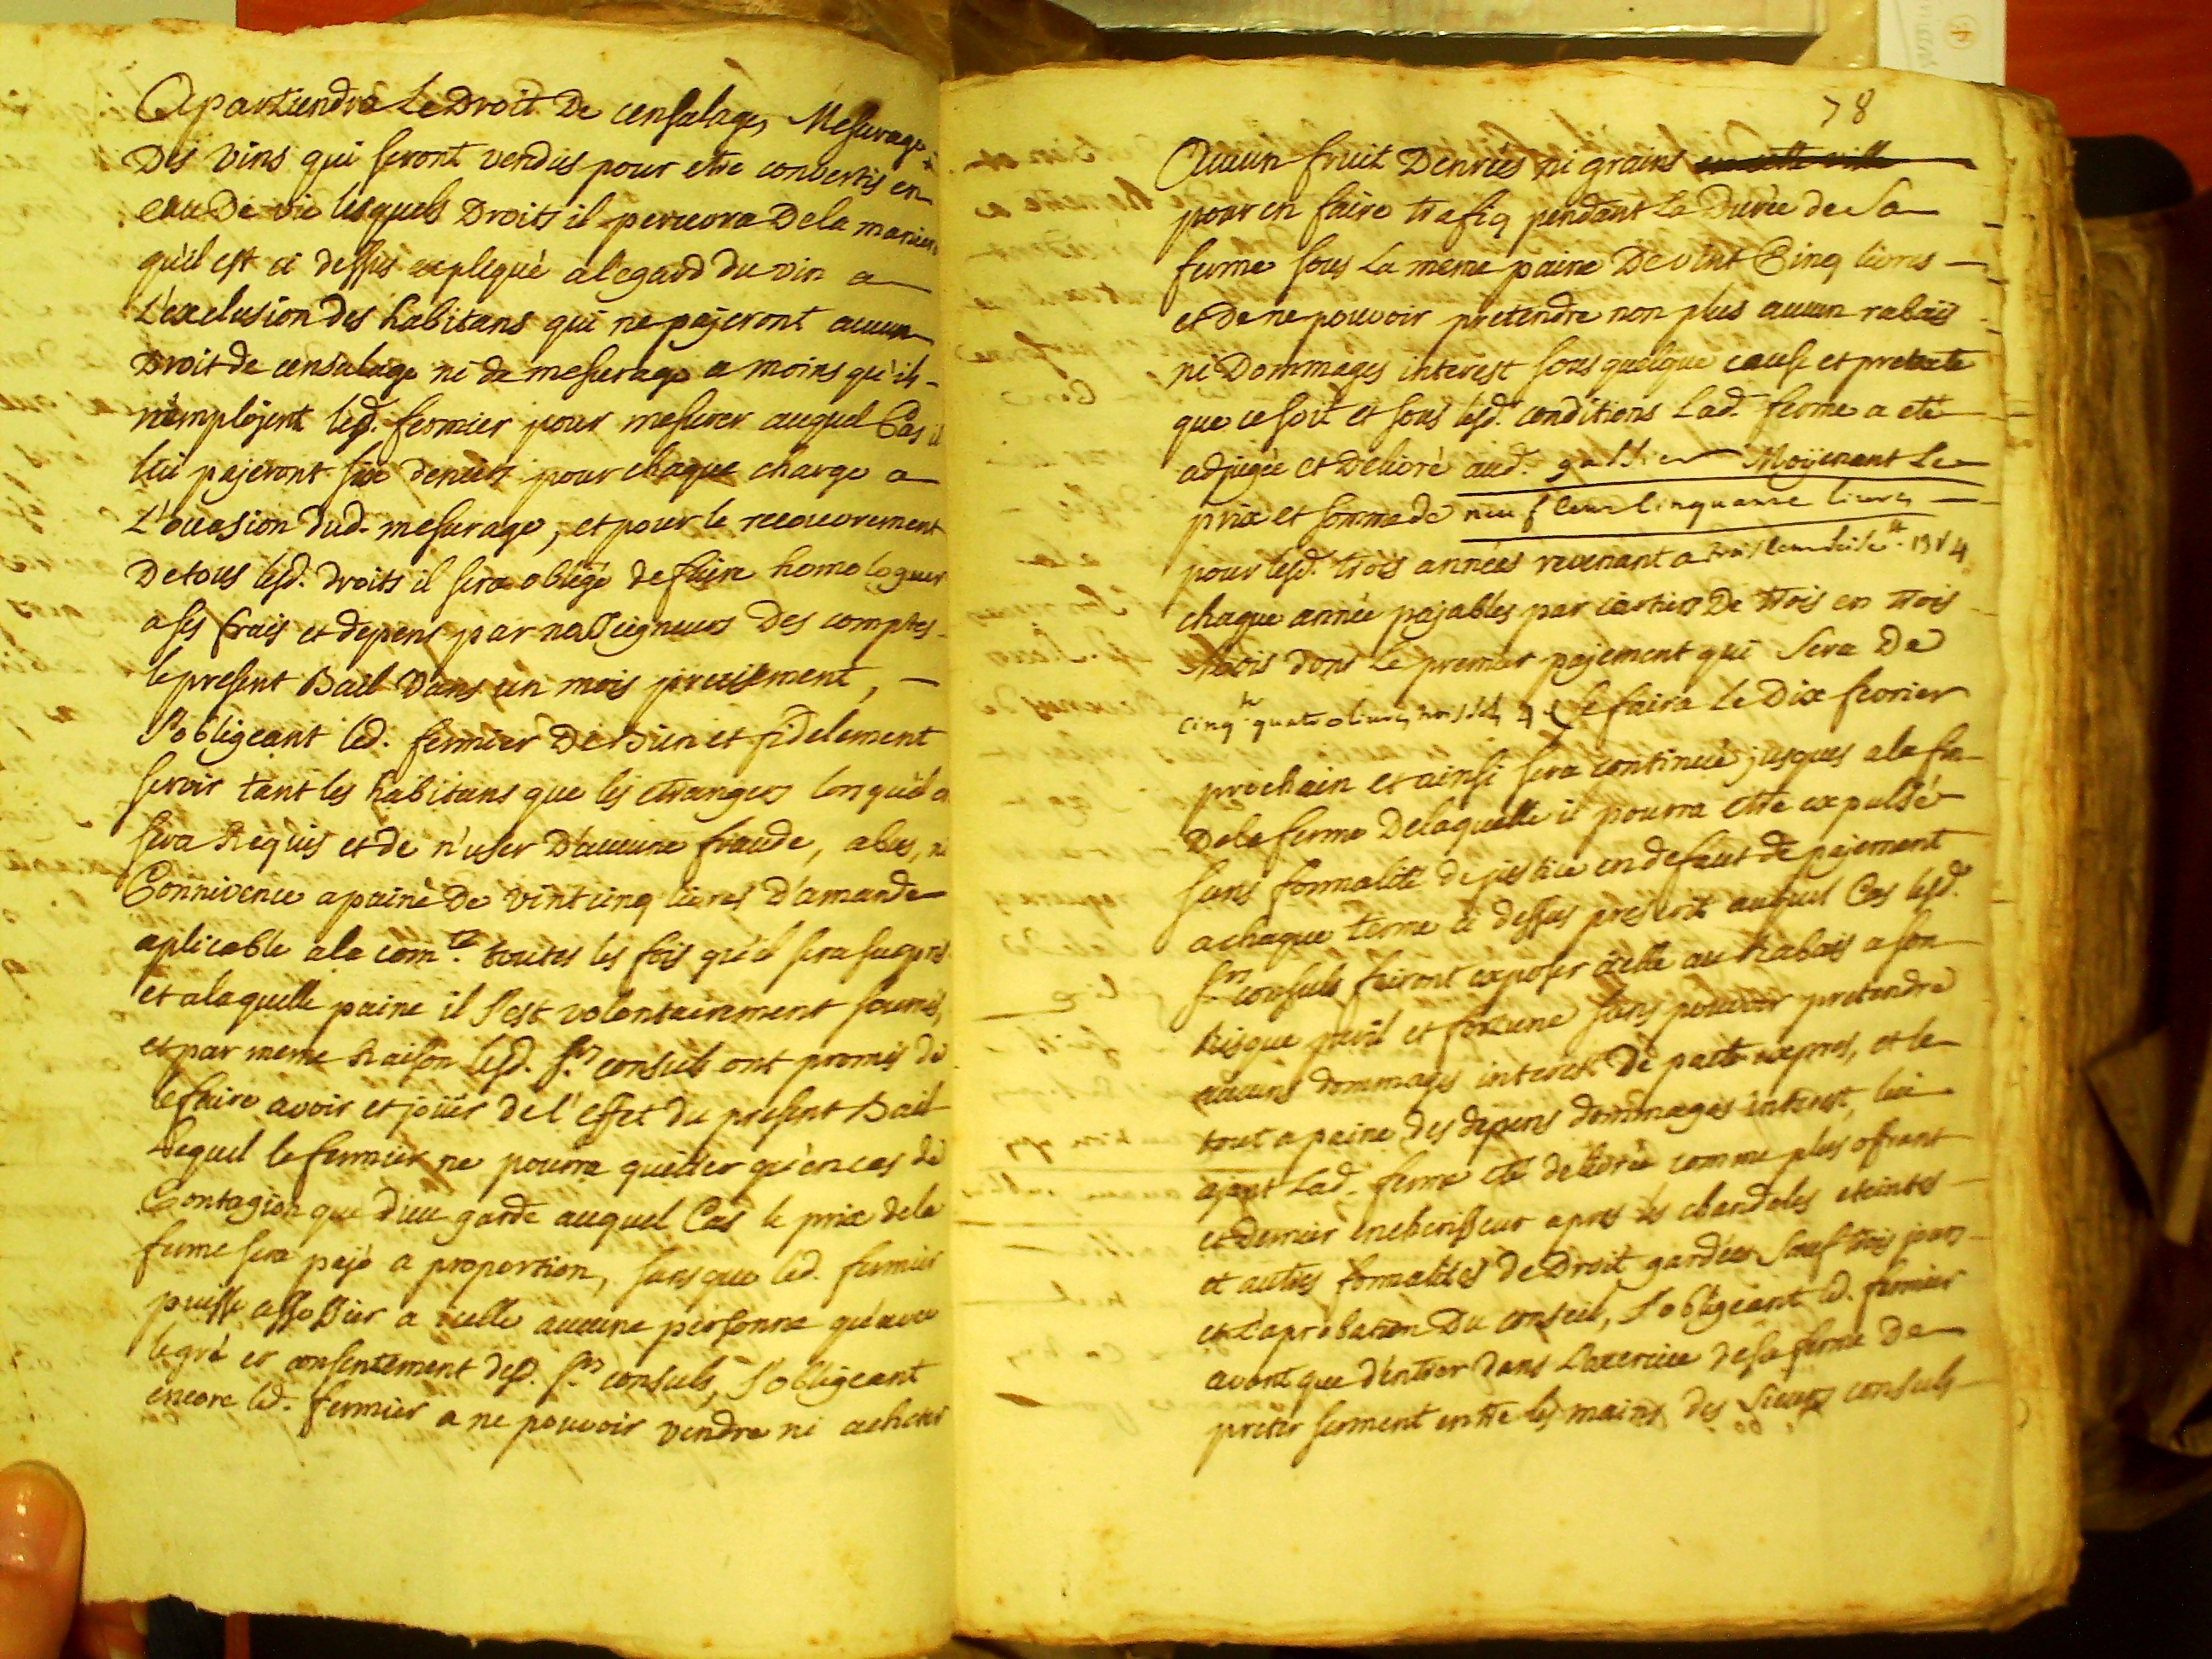 Apartiendra Le Droit De censalage, Mesurage
Des vins qui seront vendus pour etre convertis en
eau De vie lesquels Droits il percevra De la maniere
qu'il est ci dessus expliqué a legard du vin a
L'exclusion des habitans qui ne pajeront aucun
Droit de censalage ni de mesurage a moins qu'ils
n'emplojent led. fermier pour mesurer auquel Cas il
lui pajeront six deniers pour chaque charge a
L'ocasion dud. mesurage, et pour le recouvrement
De tous lesd. droits il sera obligé de faire homologuer
a ses frais et depens par nosseigneurs Des comptes
le present Bail Dans un mois precisement,
S'obligeant led. fermier De Bien et fidelement
servir tant les habitans que les etrangers lorsqu'il en
sera Requis et de n'user D'aucune fraude, abus, ni
Connivence a paine de vint cinq livres d'amande
aplicable a la com.té toutes les fois qu'il sera surpris
et a laquelle paine il s'est volontairement soumis,
et par meme Raison lesd. Srs consuls ont promis de
le faire avoir et joüir de l'effet du present Bail
Lequel le fermier ne pourra quitter qu'en cas de
Contagion que dieu garde auquel Cas le prix de la
ferme sera pajé a proportion, sans que led. fermier
puisse assossier a icelle aucune personne qu'avec
le gré et consentement desd. Srs consuls, S'obligeant
encore led. fermier a ne pouvoir vendre ni acheter
78
Aucun fruit Denrées ni grains en cette ville
pour en faire trafiq pendant La Durée de Sa
ferme sous La meme paine De vint Cinq livres
et De ne pouvoir pretendre non plus aucun rabais
ni Dommages interest sous quelque cause et pretexte
que ce soit et sous lesd. conditions Lad. ferme a eté
adjugée et Delivré aud. Moÿenant Le
prix et somme de neuf cens cinquante livres
pour lesd. trois années revenant a trois cens seise ₶ 13 s 4
chaque année pajables par cartiers De trois en trois
Mois dont Le premier pajement qui Sera De
Se faira Le Dix fevrier
prochain et ainsi sera continué jusques a la fin
De la ferme De laquelle il pourra etre expulsé
sans formalité de justice en defaut de pajement
a chaque terme ci dessus prescrit auquel Cas lesd.
Srs consuls fairont exposer icelle au Rabais a son
Risque peril et fortune sans pouvoir pretendre
aucuns dommages interest De pacte expres, et le
tout a paine des depens dommages interest, lui
ajant Lad. ferme eté delivrée comme plus offrant
et dernier encherisseur apres les chandeles eteintes
et autres formalités de Droit gardées Sauf trois jours
et L'aprobation Du conseil, S'obligeant led. fermier
avant que d'entrer dans L'exercice de sa ferme De
preter serment entre les mains des Sieurs consuls